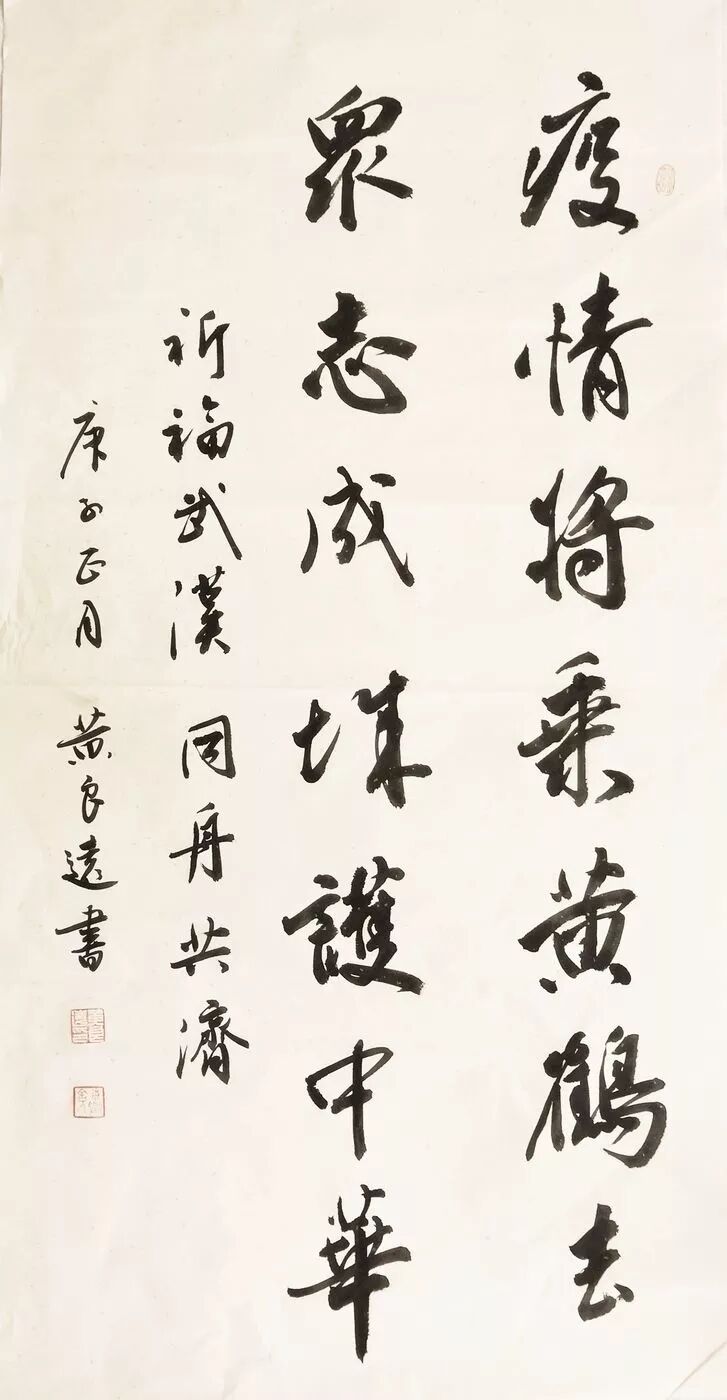 疫情将乘黄鶴去
眾志成城護中華
祈福武漢 同舟共濟
庚子正月 黄良遠書